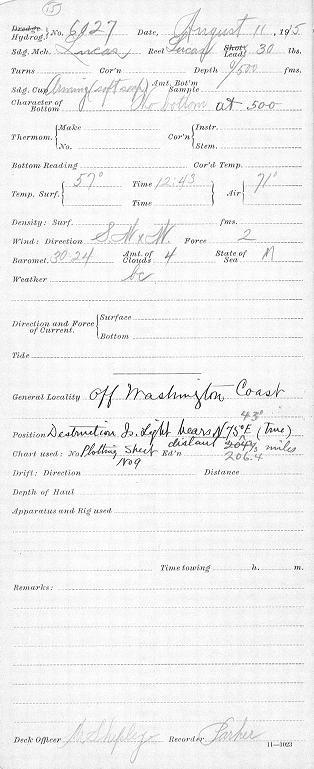 (15)
Dredge Hydrog. } No. 6127 Date, August 11, 195
Sdg. Mch. Lucas Reel Lucas Shot Lead 30 lbs.
Turns Cor'n Depth 0/500 fms.
Sdg. Cup Arming (soft soap) Amt. Bot'm Sample
Character of Bottom no bottom at 500
Thermom. { Make No. Cor'n { Instr. Stem.
Bottom Reading Cor'd Temp.
Temp. Surf. { 57° Time 12:43 Time } Air { 71°
Density: Surf. fms.
Wind: Direction S.W x W. Force 2
Baromet. 30.24 Amt. of Clouds 4 State of Sea M
Weather bc
Direction and Force of Current. { Surface Bottom
Tide
General Locality off Washington Coast
43°
Position Destruction Is. Light bears N 75° E (true)
distant miles
Chart used: No. Plotting Sheet Ed'n 206.4
No 9
Drift: Direction Distance
Depth of Haul
Apparatus and Rig used
Time towing h. m.
Remarks:
Deck Officer Recorder Parker
11—1023